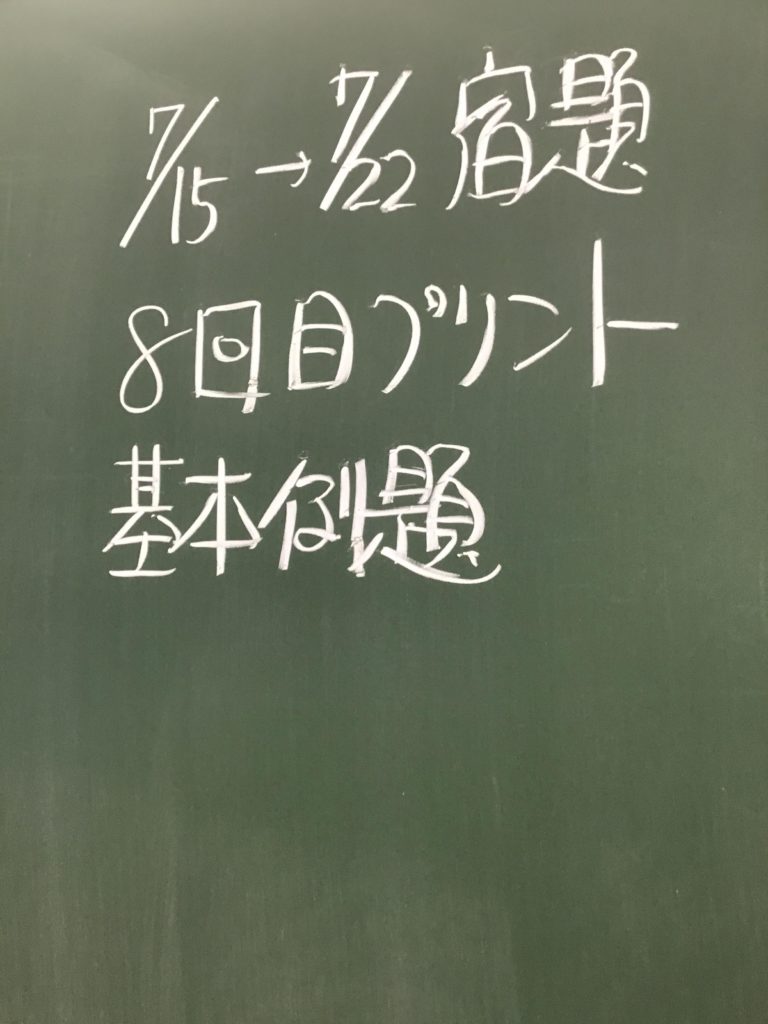 7/15→7/22 宿題
8回目プリント
基本例題